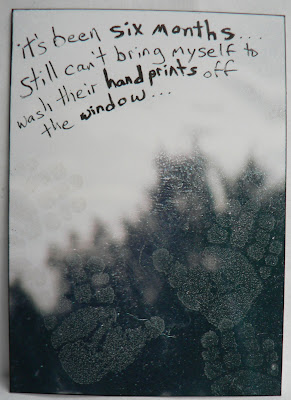 it's been six months...
Still can't bring myself to
wash their hand prints off
the window...